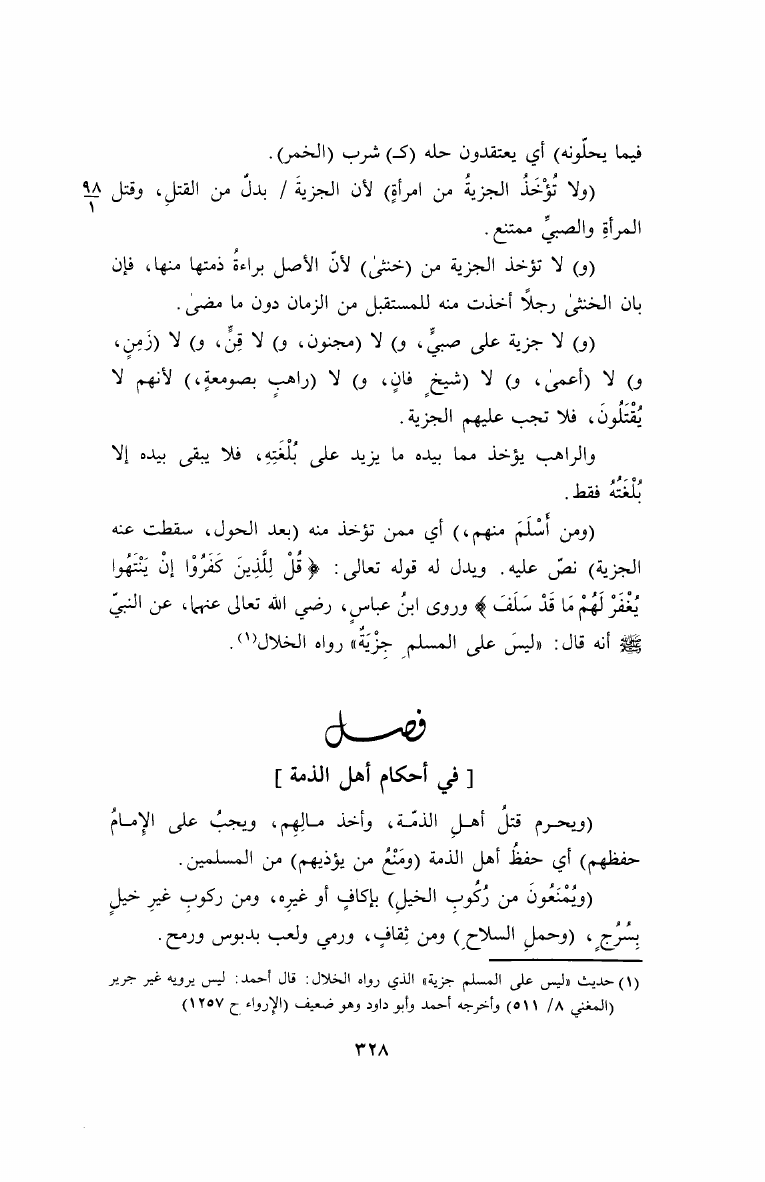 فيما يحلّونه) أي يعتقدون حله (كـ) شرب (الخمر).
(ولا تُؤْخَذُ الجزيةُ من امرأةٍ) لأن الجزيةَ / بدلٌ من القتلِ، وقتل ٩٨/١
المرأةِ والصبيِّ ممتنع.
(و) لا تؤخذ الجزية من (خنثىٰ) لأنّ الأصل براءةُ ذمتها منها، فإن
بان الخنثىٰ رجلاً أخذت منه للمستقبل من الزمان دون ما مضىٰ.
(و) لا جزية على صبيٍّ، و) لا (مجنون، و) لا قِنٍّ، و) لا (زَمِنٍ،
و) لا (أعمىٰ، و) لا (شيخٍ فانٍ، و) لا (راهبٍ بصومعةٍ،) لأنهم لا
يُقْتَلُونَ، فلا تجب عليهم الجزية.
والراهب يؤخذ مما بيده ما يزيد على بُلْغَتِهِ، فلا يبقى بيده إلا
بُلْغَتُهُ فقط.
(ومن أَسْلَمَ منهم،) أي ممن تؤخذ منه (بعد الحول، سقطت عنه
الجزية) نصّ عليه. ويدل له قوله تعالى: ﴿قُلْ لِلَّذِينَ كَفَرُوْا إنْ يَنْتَهُوا
يُغْفَرْ لَهُمْ مَا قَدْ سَلَفَ﴾ وروى ابنُ عباسٍ، رضي الله تعالى عنهما، عن النبيّ
ﷺ أنه قال: «ليسَ على المسلمِ جِزْيَةٌ» رواه الخلال(١).
فصل
[في أحكام أهل الذمة]
(ويحرم قتلُ أهلِ الذمّة، وأخذ مالِهِم، ويجبُ على الإمامُ
حفظهم) أي حفظُ أهل الذمة (ومَنْعُ من يؤذيهم) من المسلمين.
(ويُمْنَعُونَ من رُكُوبِ الخيلِ) بإكافٍ أو غيره، ومن ركوبِ غيرِ خيلٍ
بِسُرُجٍ، (وحملِ السلاحِ) ومن ثِقافٍ، ورمي ولعب بدبوس ورمح.
(١) حديث «ليس على المسلم جزية» الذي رواه الخلال: قال أحمد: ليس يرويه غير جرير
(المغني ٨/ ٥١١) وأخرجه أحمد وأبو داود وهو ضعيف (الإرواء ح ١٢٥٧)
٣٢٨